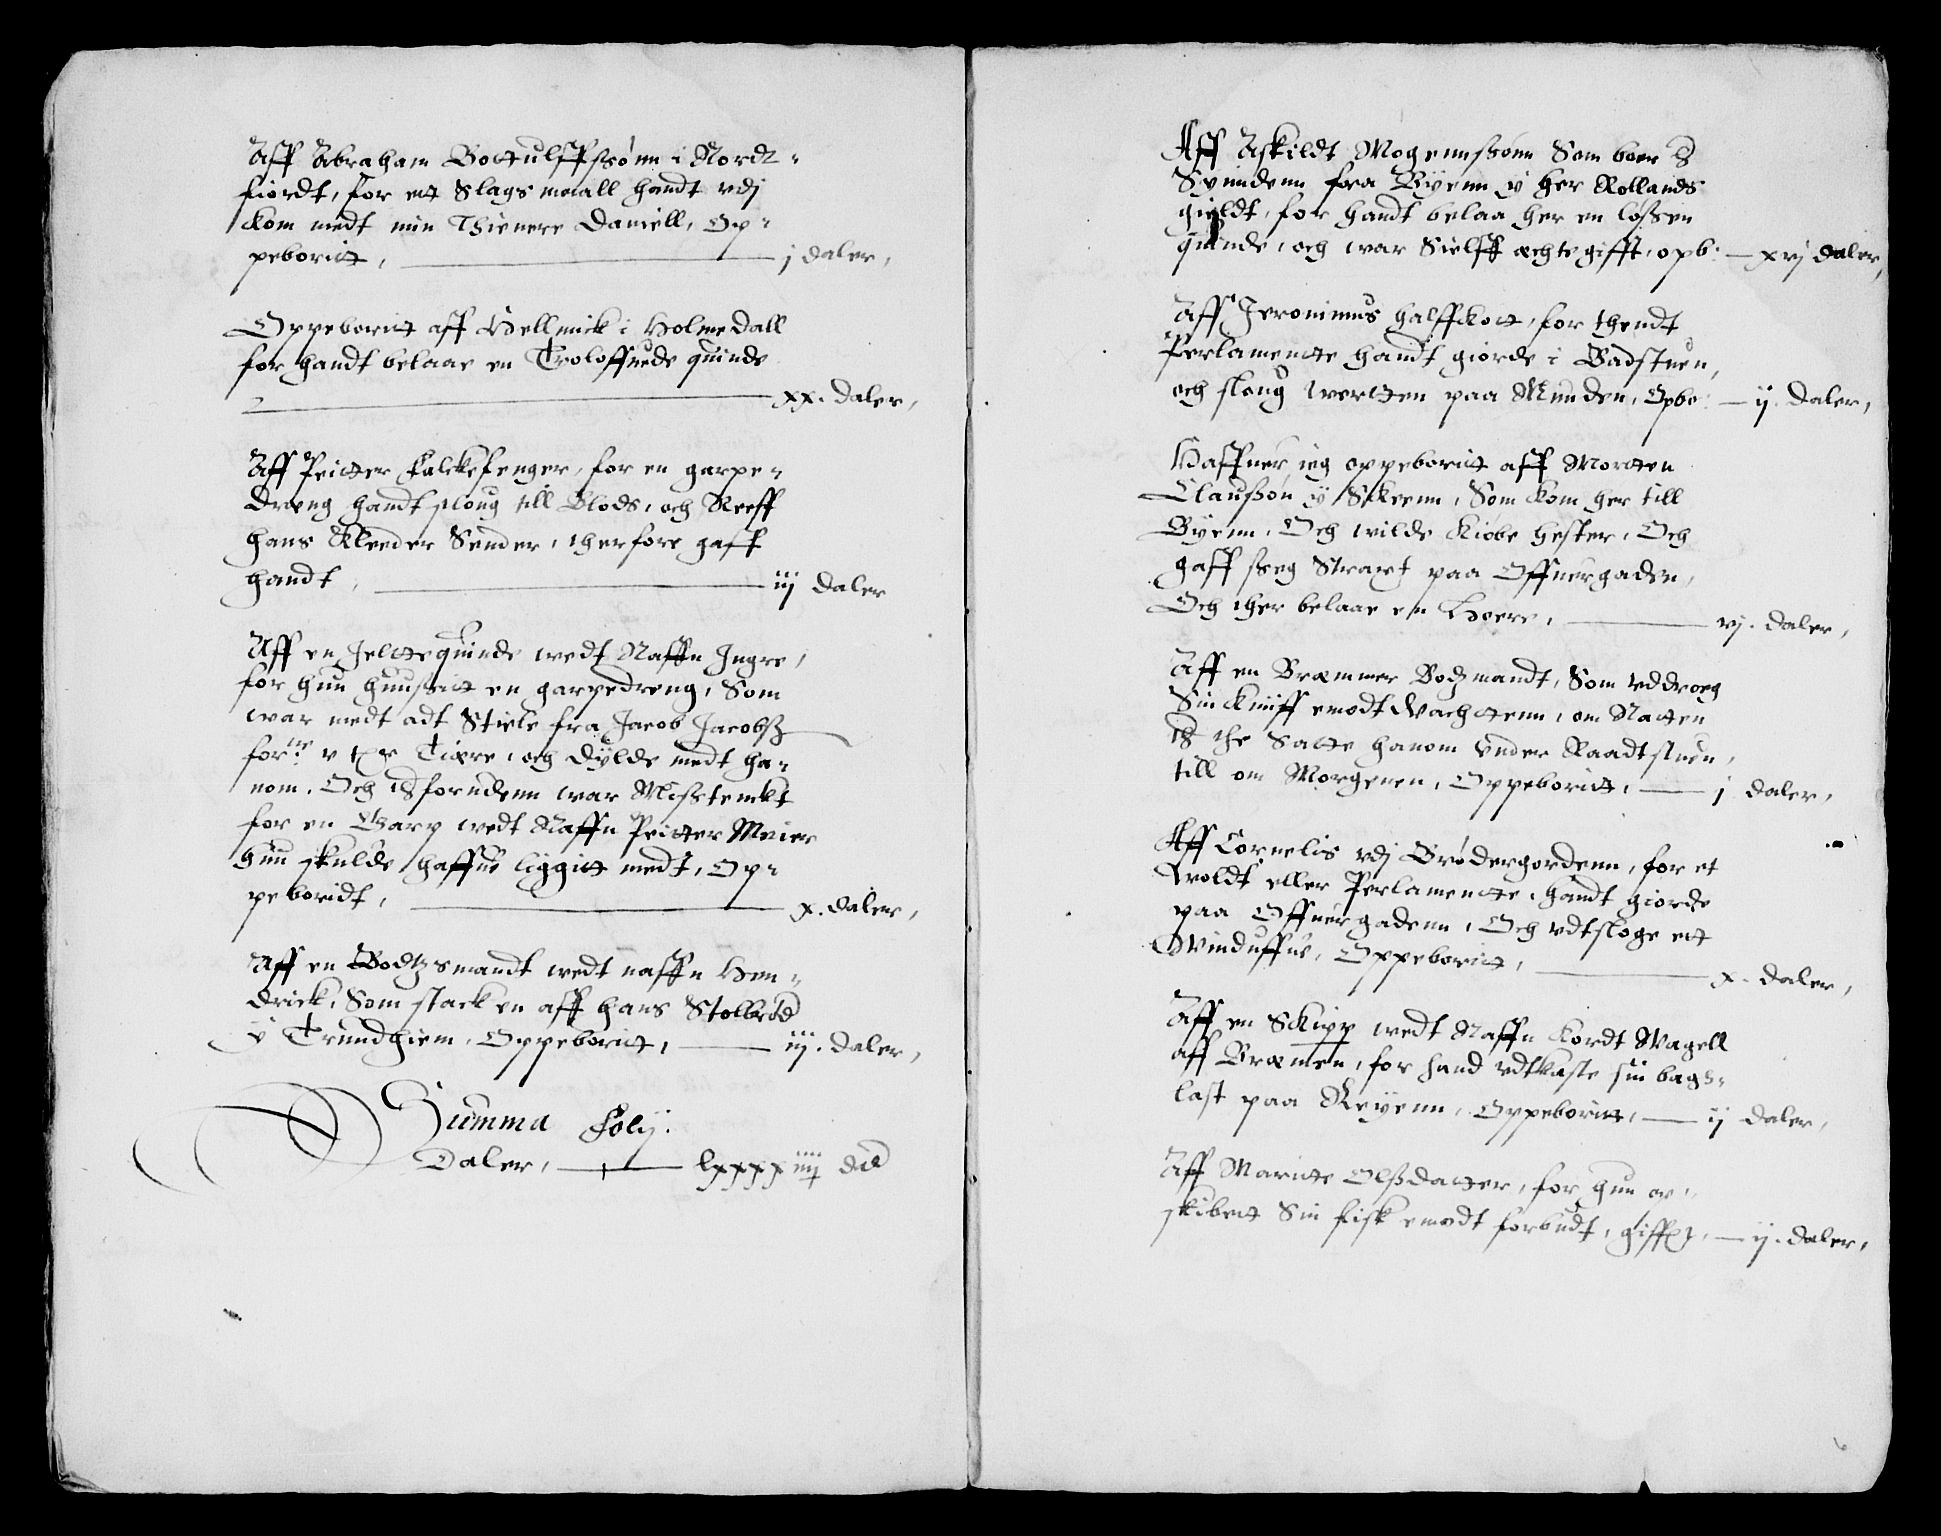 Aff Abraham Bottulffssønn i Nordt-
fiordt, for ett Slags maall handt vdj
kom medt min Thienere Daniell, Op-
peboritt, j daler,
Oppeboritt aff Vellmick i Holmedall
for handt belaae en Troloffuede quinde
xx. daler,
Aff Peitter Falckefenger, for en garpe-
dreng handt sloug till Blods, och Reeff
hans Kleeder Sønder, therfore gaff
handt, iij daler
Aff en Jeltequinde wedt Naffn Ingre,
for hun huussitt en garpedreng, Som
war medt adt Stiele fra Jacob Jacobsz
for v Tiære, och dylde medt ha-
nom. Och war Misstenckt
for en Garp wedt Naffn Peitter Meier
hun skulde haffue liggitt medt, Op-
peboridt, x. daler,
Aff en Bodtzsmandt wedt naffn Hen-
drick, Som stack en aff hans Stolbrød
y Trundhiem, Oppeboritt, iij. daler,
Summa Folij.
Daler, lxxxxiiij
Aff Askildt Mogennssønn Som boer
Synndenn fra Byenn y her Rollands
gieldt, for handt belaa her en løssen
quinde, och war Sielff echte gifft, opb: xvj daler,
Aff Jeronimus Halffkott, for thendt
Perlamentte handt giorde i Badstuen,
och sloug wertten paa Munden, Opbo: ij. daler,
Haffuer ieg oppeboritt aff Mortten
Claussøn y Skeenn, Som kom her till
Byenn, Och wilde kiøbe Hester, Och
gaff sseg Straxt paa Offuergaden,
Och ther belaae en Hoere, vj. daler,
Aff en Bræmmer Bodzmandt, Som vddroeg
Sin kniff emodt Wachttenn, om Natten
the Satte hanom vnder Raadtstuen,
till om Morgenen, Oppeboritt, j daler,
Aff Cornelis vdj Brødergordenn, for et
Woldt eller Perlamentte, handt giorde
paa Offuergadenn, Och vdtsloge ett
Winduffue, Oppeboritt, x. daler,
Aff en Skipp wedt Naffn Kordt Wagell
aff Bræmen, for hand vdtkaste sin bag-
last paa Reyenn, Oppeboritt, ij daler,
Aff Maritte Olssdatter, for hun
skibett Sin fisk emodt forbudt, ij. daler,